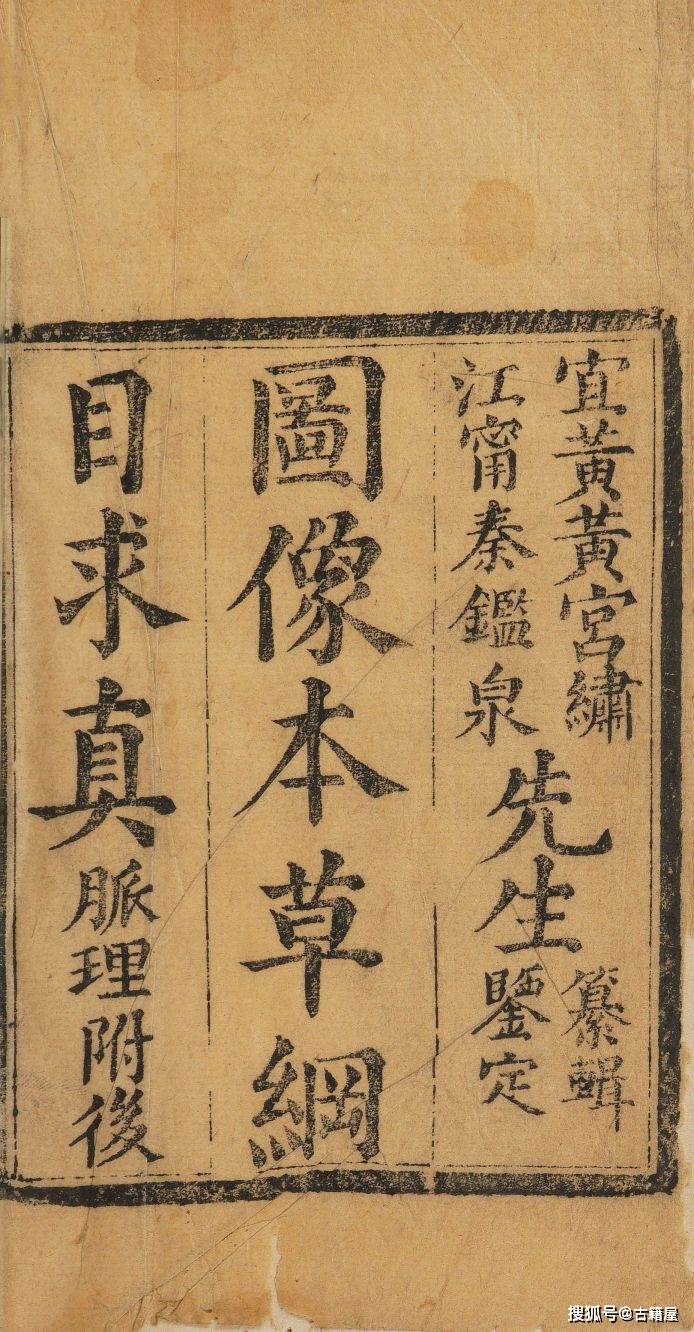 宜黃黃宮繡
江甯秦鑑泉
先生
纂輯
鑒定
圖像本草綱
目求真脈理附後
搜狐号@古籍屋